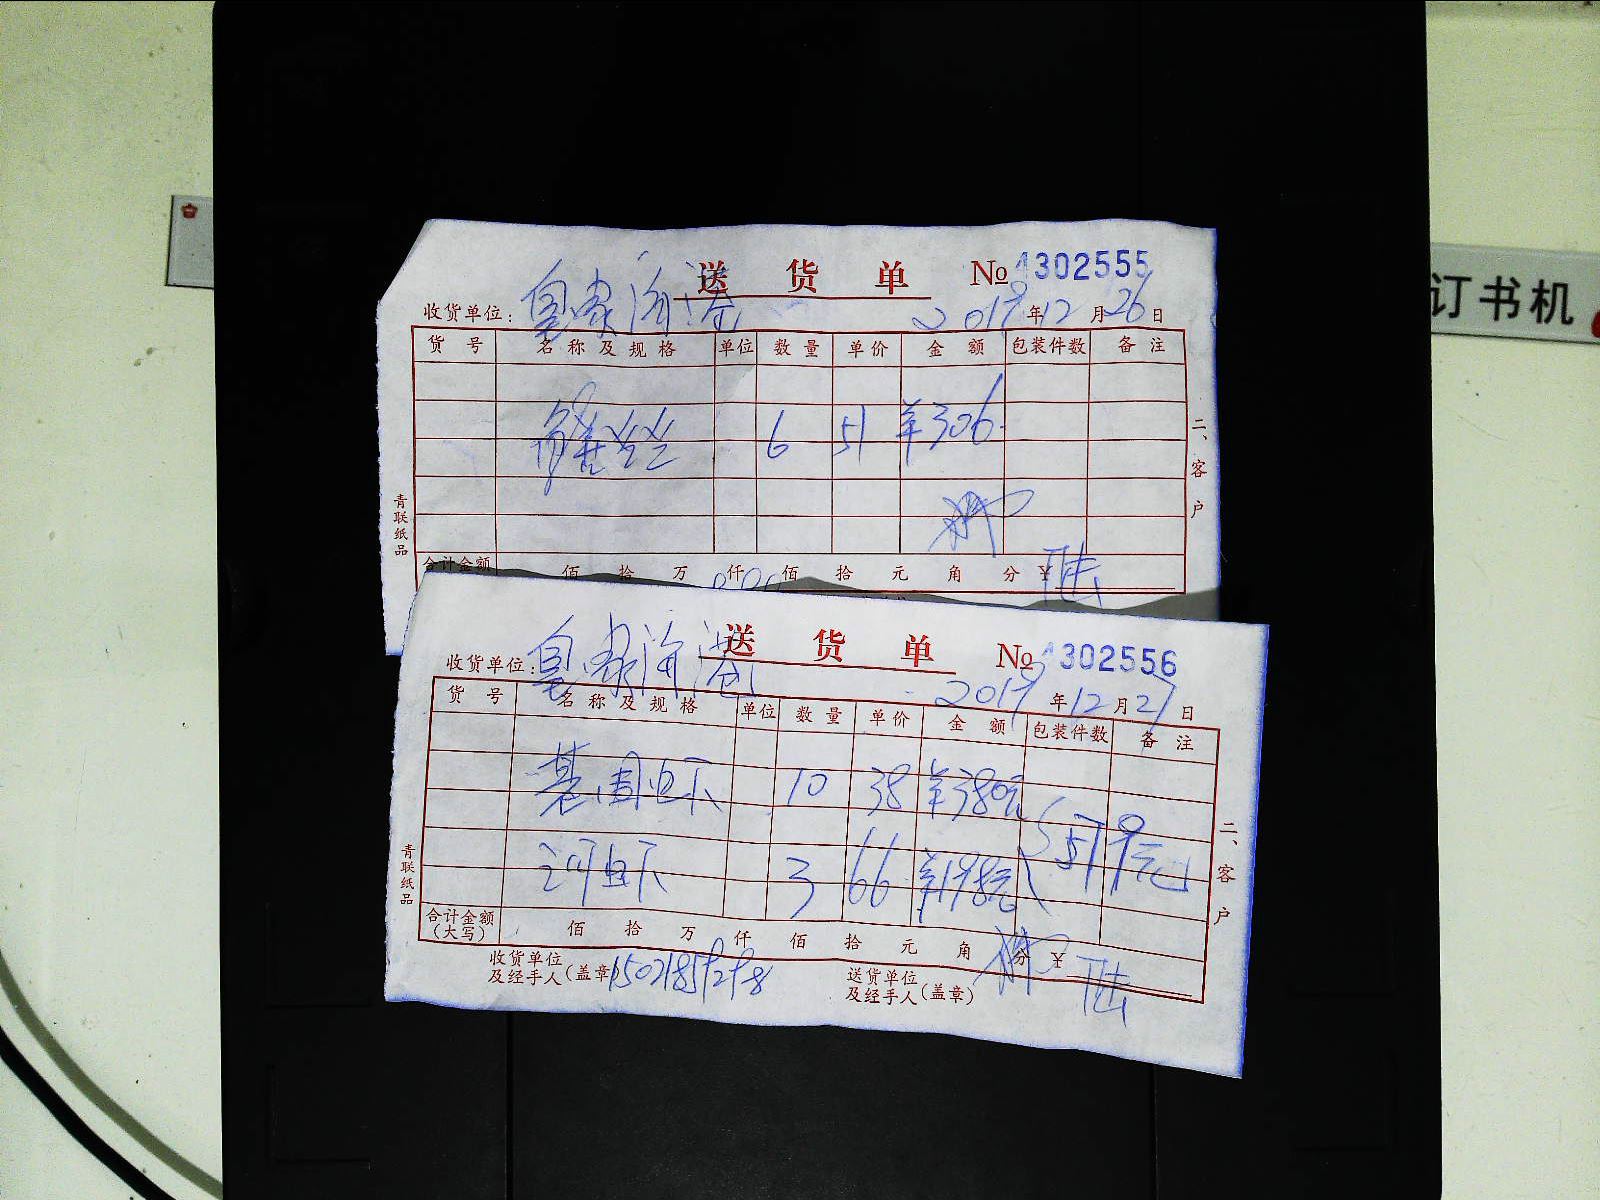 送货单 No 1302555
收货单位: 皇家海港 2019年12月26日
货号 名称及规格 单位 数量 单价 金额 包装件数 备注
6 51 ¥306
二、客户
青联纸品
合计金额 佰 拾 万 仟 佰 拾 元 角 分 ¥
送货单 No 1302556
收货单位: 皇家海港 2019年12月27日
货号 名称及规格 单位 数量 单价 金额 包装件数 备注
基围虾 10 38 ¥380元
河虾 3 66 ¥198元
二、客户
青联纸品
合计金额(大写) 佰 拾 万 仟 佰 拾 元 角 分 ¥
收货单位及经手人(盖章)
送货单位及经手人(盖章)
订书机